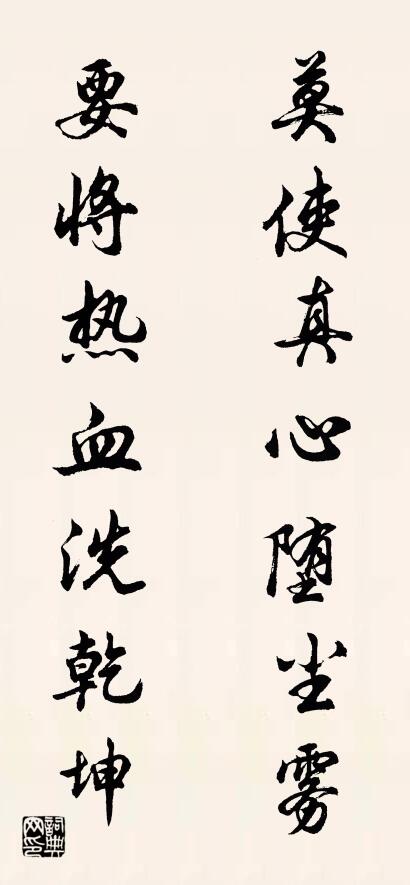 莫使真心堕尘雾
要将热血洗乾坤
词典网印